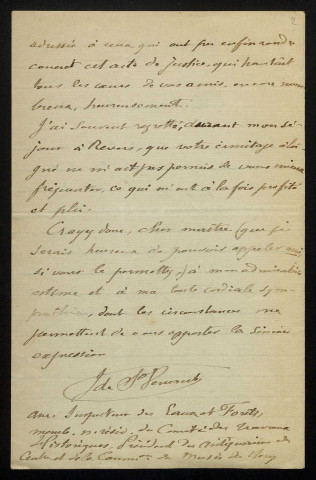 2
adressée à ceux qui ont pu enfin rendre
concret cet acte de Justice, qui
tous les cœurs de vos amis, encore nom
breux, heureusement.
J'ai souvent regretté, durant mon sé-
jour à Nevers, que votre ermitage éloi
gné ne m'ait pas permis de vous mieux
fréquenter, ce qui m'eut à la fois profité
et plu.
Croyez donc, cher maître (que je
serais heureux de pouvoir appeler ami
si vous le permettez,) à mon admirative
estime et à ma toute cordiale sym-
pathie, dont les circonstances me
permettent de vous apporter la sincère
expression
J de St Venant
anc. Inspecteur des Eaux et Forêts,
memb. n. résid. du Comité des Travaux
Historiques, Président des Antiquaires du
Centre et de la Commiss. du Musée de Bourg